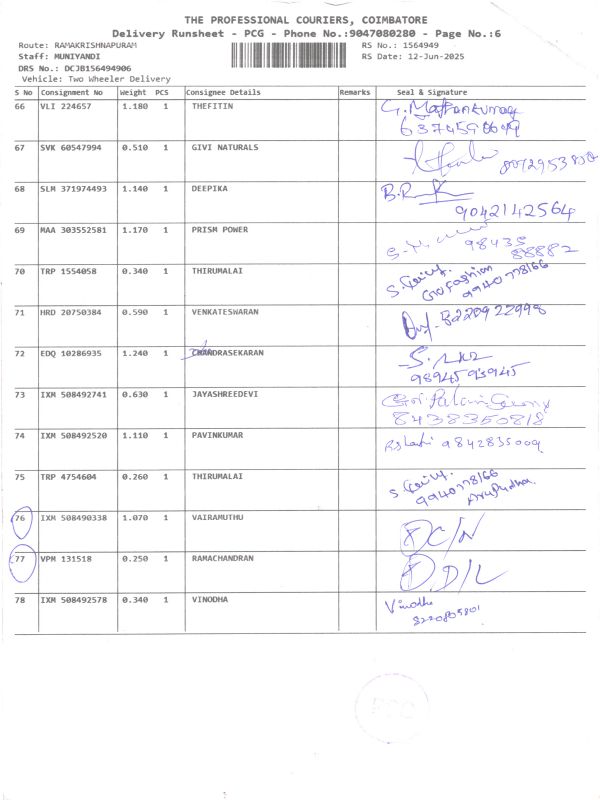 THE PROFESSIONAL COURIERS, COIMBATORE
Delivery Runsheet - PCG - Phone No.:9047080280 - Page No.:6
Route: RAMAKRISHNAPURAM RS No.: 1564949
Staff: MUNIYANDI RS Date: 12-Jun-2025
DRS No.: DCJB156494906
Vehicle: Two Wheeler Delivery
S No Consignment No Weight PCS Consignee Details Remarks Seal & Signature
66 VLI 224657 1.180 1 THEFITIN
67 SVK 60547994 0.510 1 GIVI NATURALS
68 SLM 371974493 1.140 1 DEEPIKA
90421 42564
69 MAA 303552581 1.170 1 PRISM POWER
98435
88882
70 TRP 1554058 0.340 1 THIRUMALAI
9940778166
71 HRD 20750384 0.590 1 VENKATESWARAN 8220922998
72 EDQ 10286935 1.240 1 CHANDRASEKARAN
98945 93945
73 IXM 508492741 0.630 1 JAYASHREEDEVI
8438350818
74 IXM 508492520 1.110 1 PAVINKUMAR 9842835009
75 TRP 4754604 0.260 1 THIRUMALAI
9940778166
76 IXM 508490338 1.070 1 VAIRAMUTHU DC/N
77 VPM 131518 0.250 1 RAMACHANDRAN D.D/L
78 IXM 508492578 0.340 1 VINODHA Vinodha
PCC